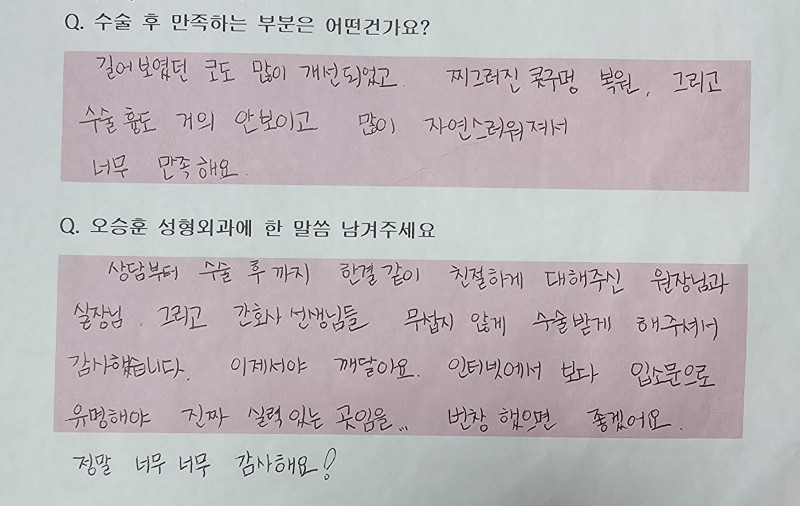 Q. 수술 후 만족하는 부분은 어떤건가요?
길어보였던 코도 많이 개선되었고 찌그러진 콧구멍 복원, 그리고
수술흉도 거의 안보이고 많이 자연스러워져서
너무 만족해요.
Q. 오승훈 성형외과에 한 말씀 남겨주세요
상담부터 수술 후까지 한결같이 친절하게 대해주신 원장님과
실장님, 그리고 간호사선생님들 무섭지 않게 수술받게 해주셔서
감사했습니다. 이제서야 깨달아요. 인터넷에서 보다 입소문으로
유명해야 진짜 실력 있는 곳임을... 번창 했으면 좋겠어요.
정말 너무 너무 감사해요!